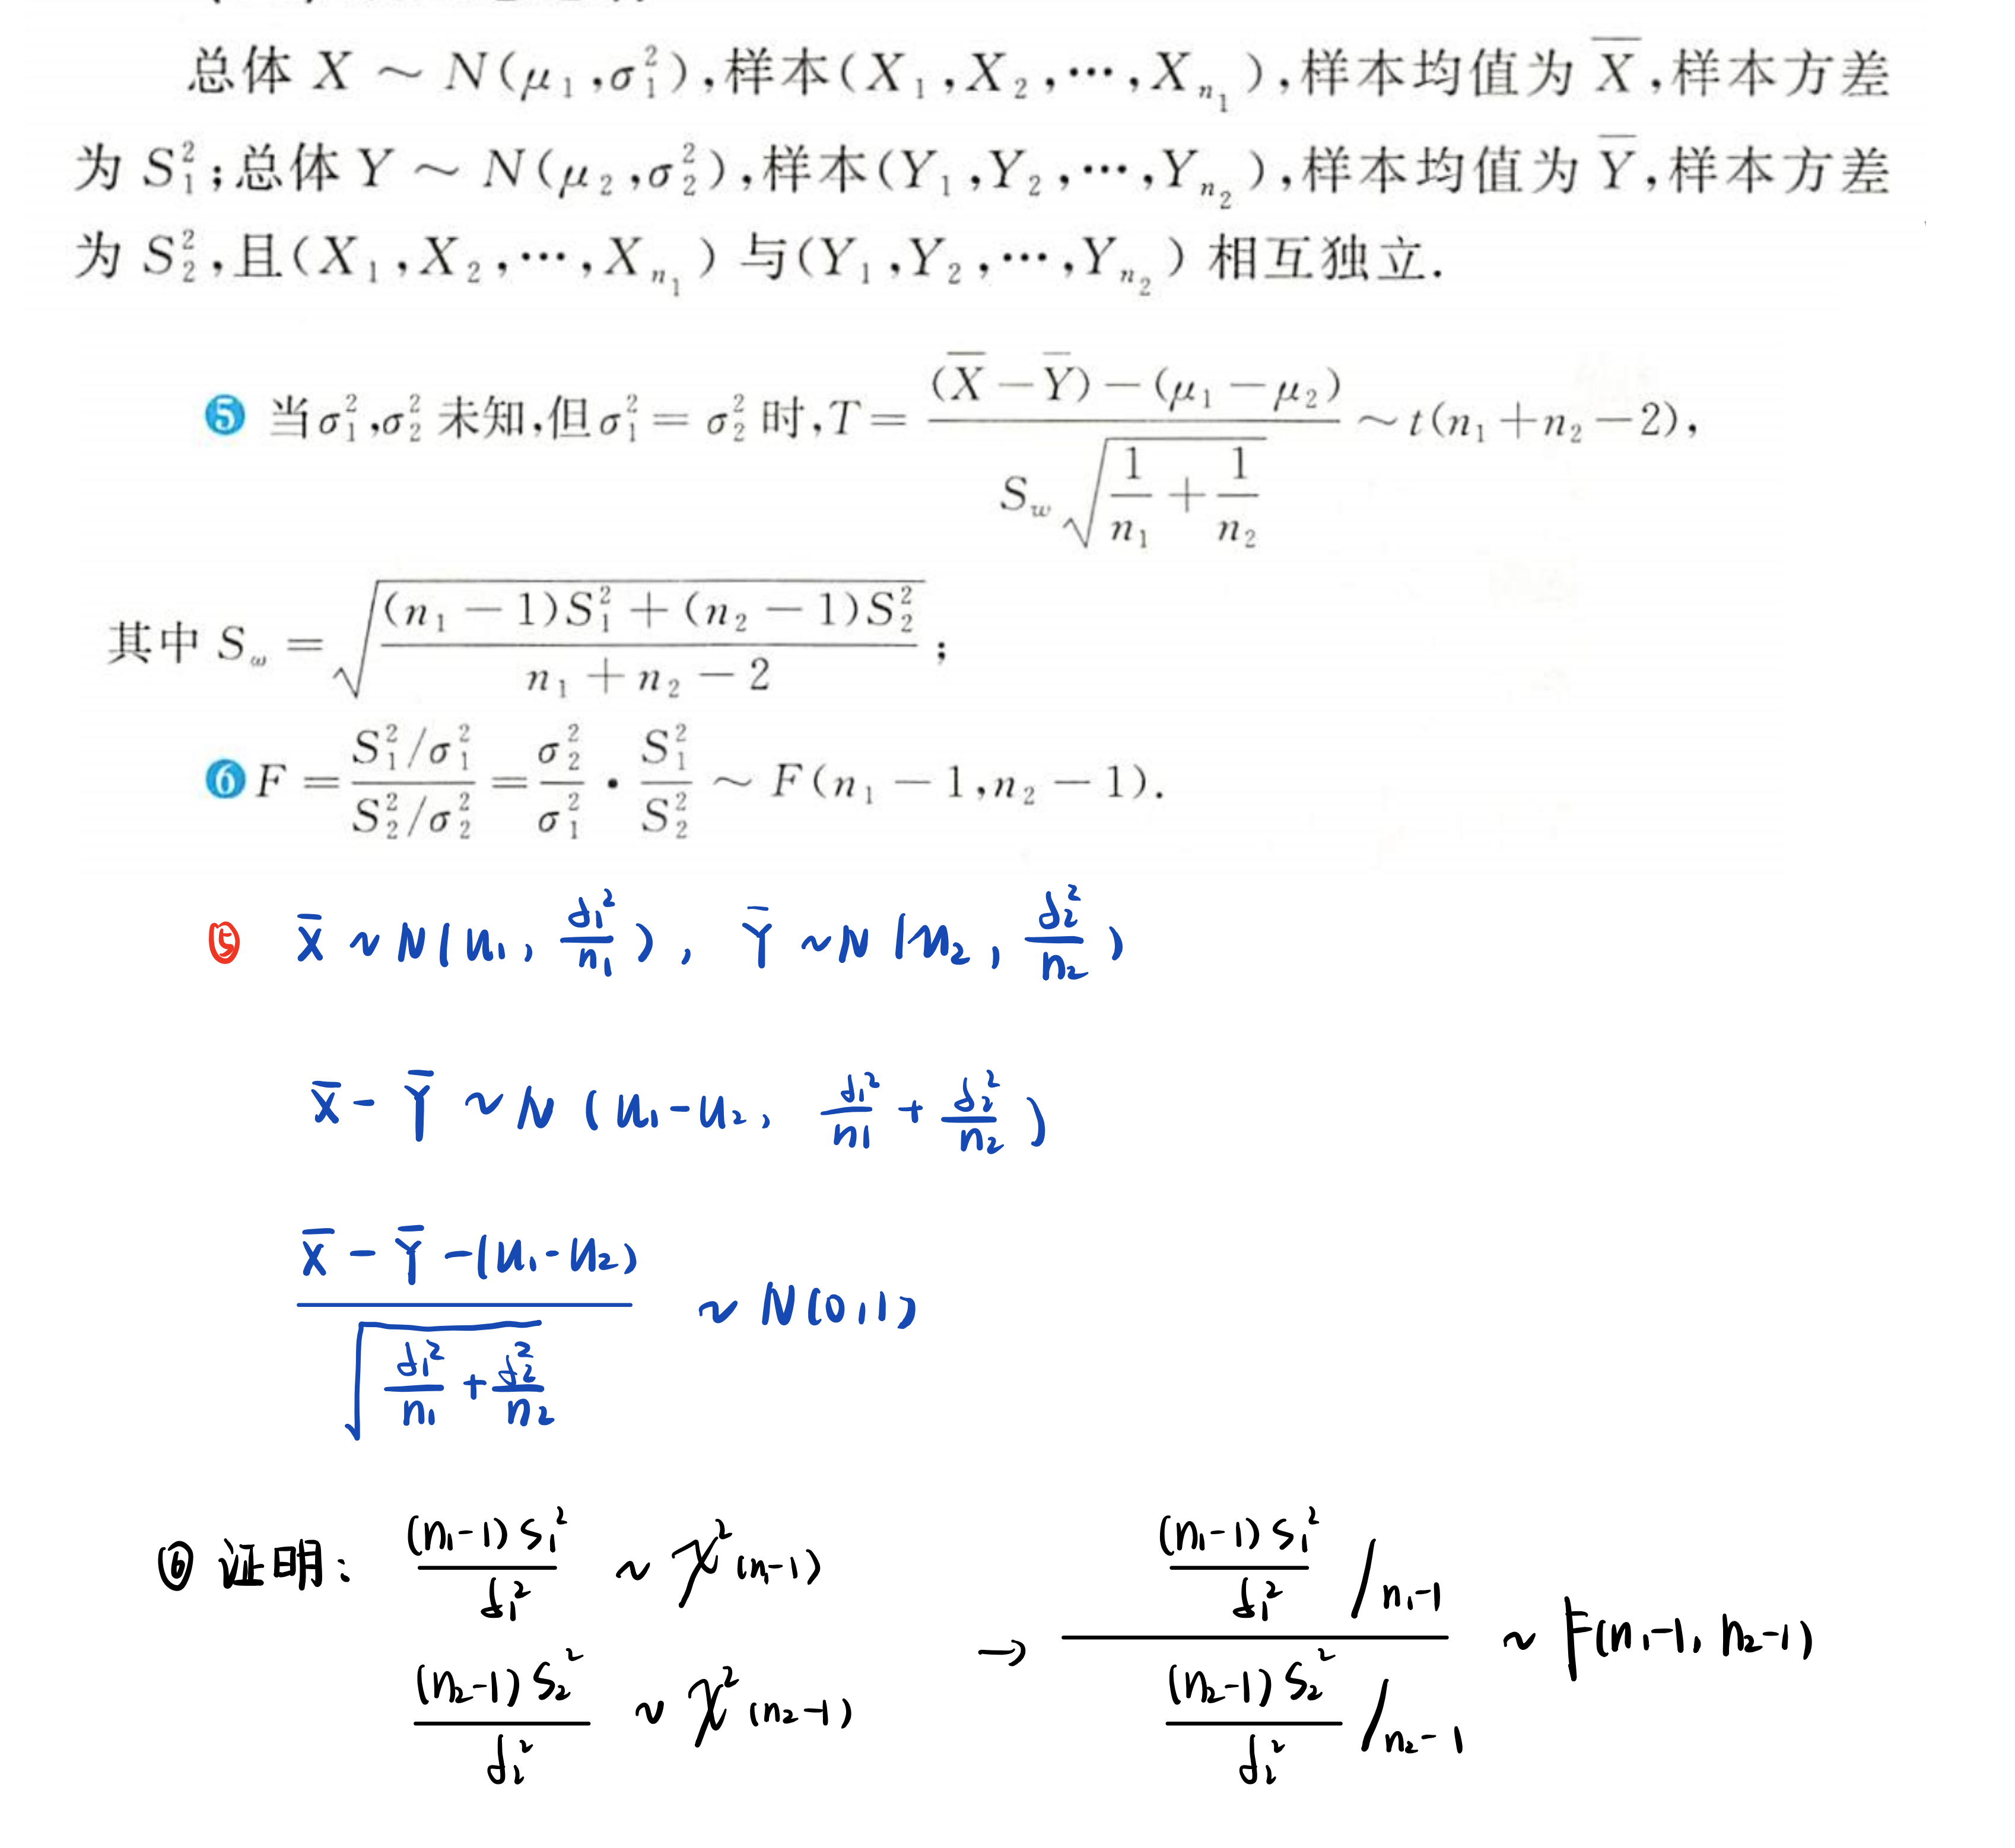 总体 X ~ N(μ₁,σ₁²),样本(X₁,X₂,⋯,Xₙ₁),样本均值为 X̄,样本方差
为 S₁²;总体 Y ~ N(μ₂,σ₂²),样本(Y₁,Y₂,⋯,Yₙ₂),样本均值为 Ȳ,样本方差
为 S₂²,且(X₁,X₂,⋯,Xₙ₁) 与(Y₁,Y₂,⋯,Yₙ₂) 相互独立.
❺ 当σ₁²,σ₂² 未知,但σ₁² = σ₂² 时,T = \frac{(X̄ − Ȳ) − (μ₁ − μ₂)}{S_w \sqrt{\frac{1}{n₁} + \frac{1}{n₂}}} ~ t(n₁+n₂−2),
其中 S_ω = \sqrt{\frac{(n₁ − 1)S₁² + (n₂ − 1)S₂²}{n₁ + n₂ − 2}} ;
❻ F = \frac{S₁²/σ₁²}{S₂²/σ₂²} = \frac{σ₂²}{σ₁²} · \frac{S₁²}{S₂²} ~ F(n₁ − 1,n₂ − 1).
⑤ X̄ ~ N(u₁, \frac{σ₁²}{n₁}), Ȳ ~ N(u₂, \frac{σ₂²}{n₂})
X̄ - Ȳ ~ N(u₁-u₂, \frac{σ₁²}{n₁} + \frac{σ₂²}{n₂})
\frac{X̄ - Ȳ -(u₁-u₂)}{\sqrt{\frac{σ₁²}{n₁} + \frac{σ₂²}{n₂}}} ~ N(0,1)
⑥ 证明: \frac{(n₁-1)S₁²}{σ₁²} ~ χ²(n₁-1)
\frac{(n₂-1)S₂²}{σ₂²} ~ χ²(n₂-1)
→ \frac{\frac{(n₁-1)S₁²}{σ₁²}/n₁-1}{\frac{(n₂-1)S₂²}{σ₂²}/n₂-1} ~ F(n₁-1, n₂-1)